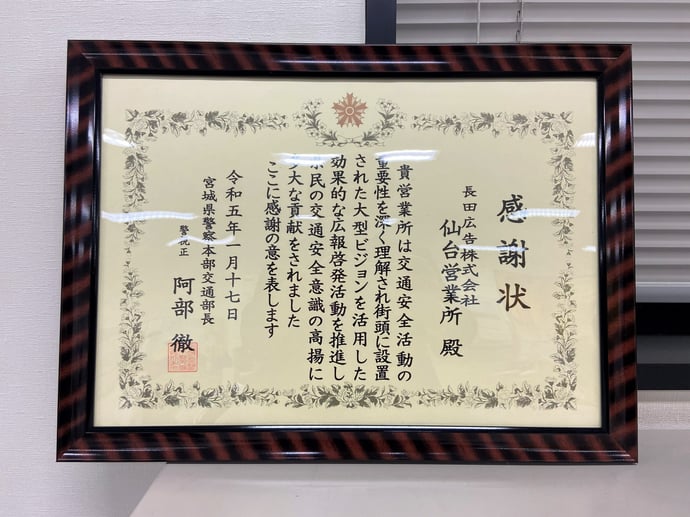 感謝状
長田広告株式会社
仙台営業所 殿
貴営業所は交通安全活動の
重要性を深く理解され街頭に設置
された大型ビジョンを活用した
効果的な広報啓発活動を推進し
県民の交通安全意識の高揚に
多大な貢献をされました
ここに感謝の意を表します
令和五年一月十七日
宮城県警察本部交通部長
警視正 阿部 徹